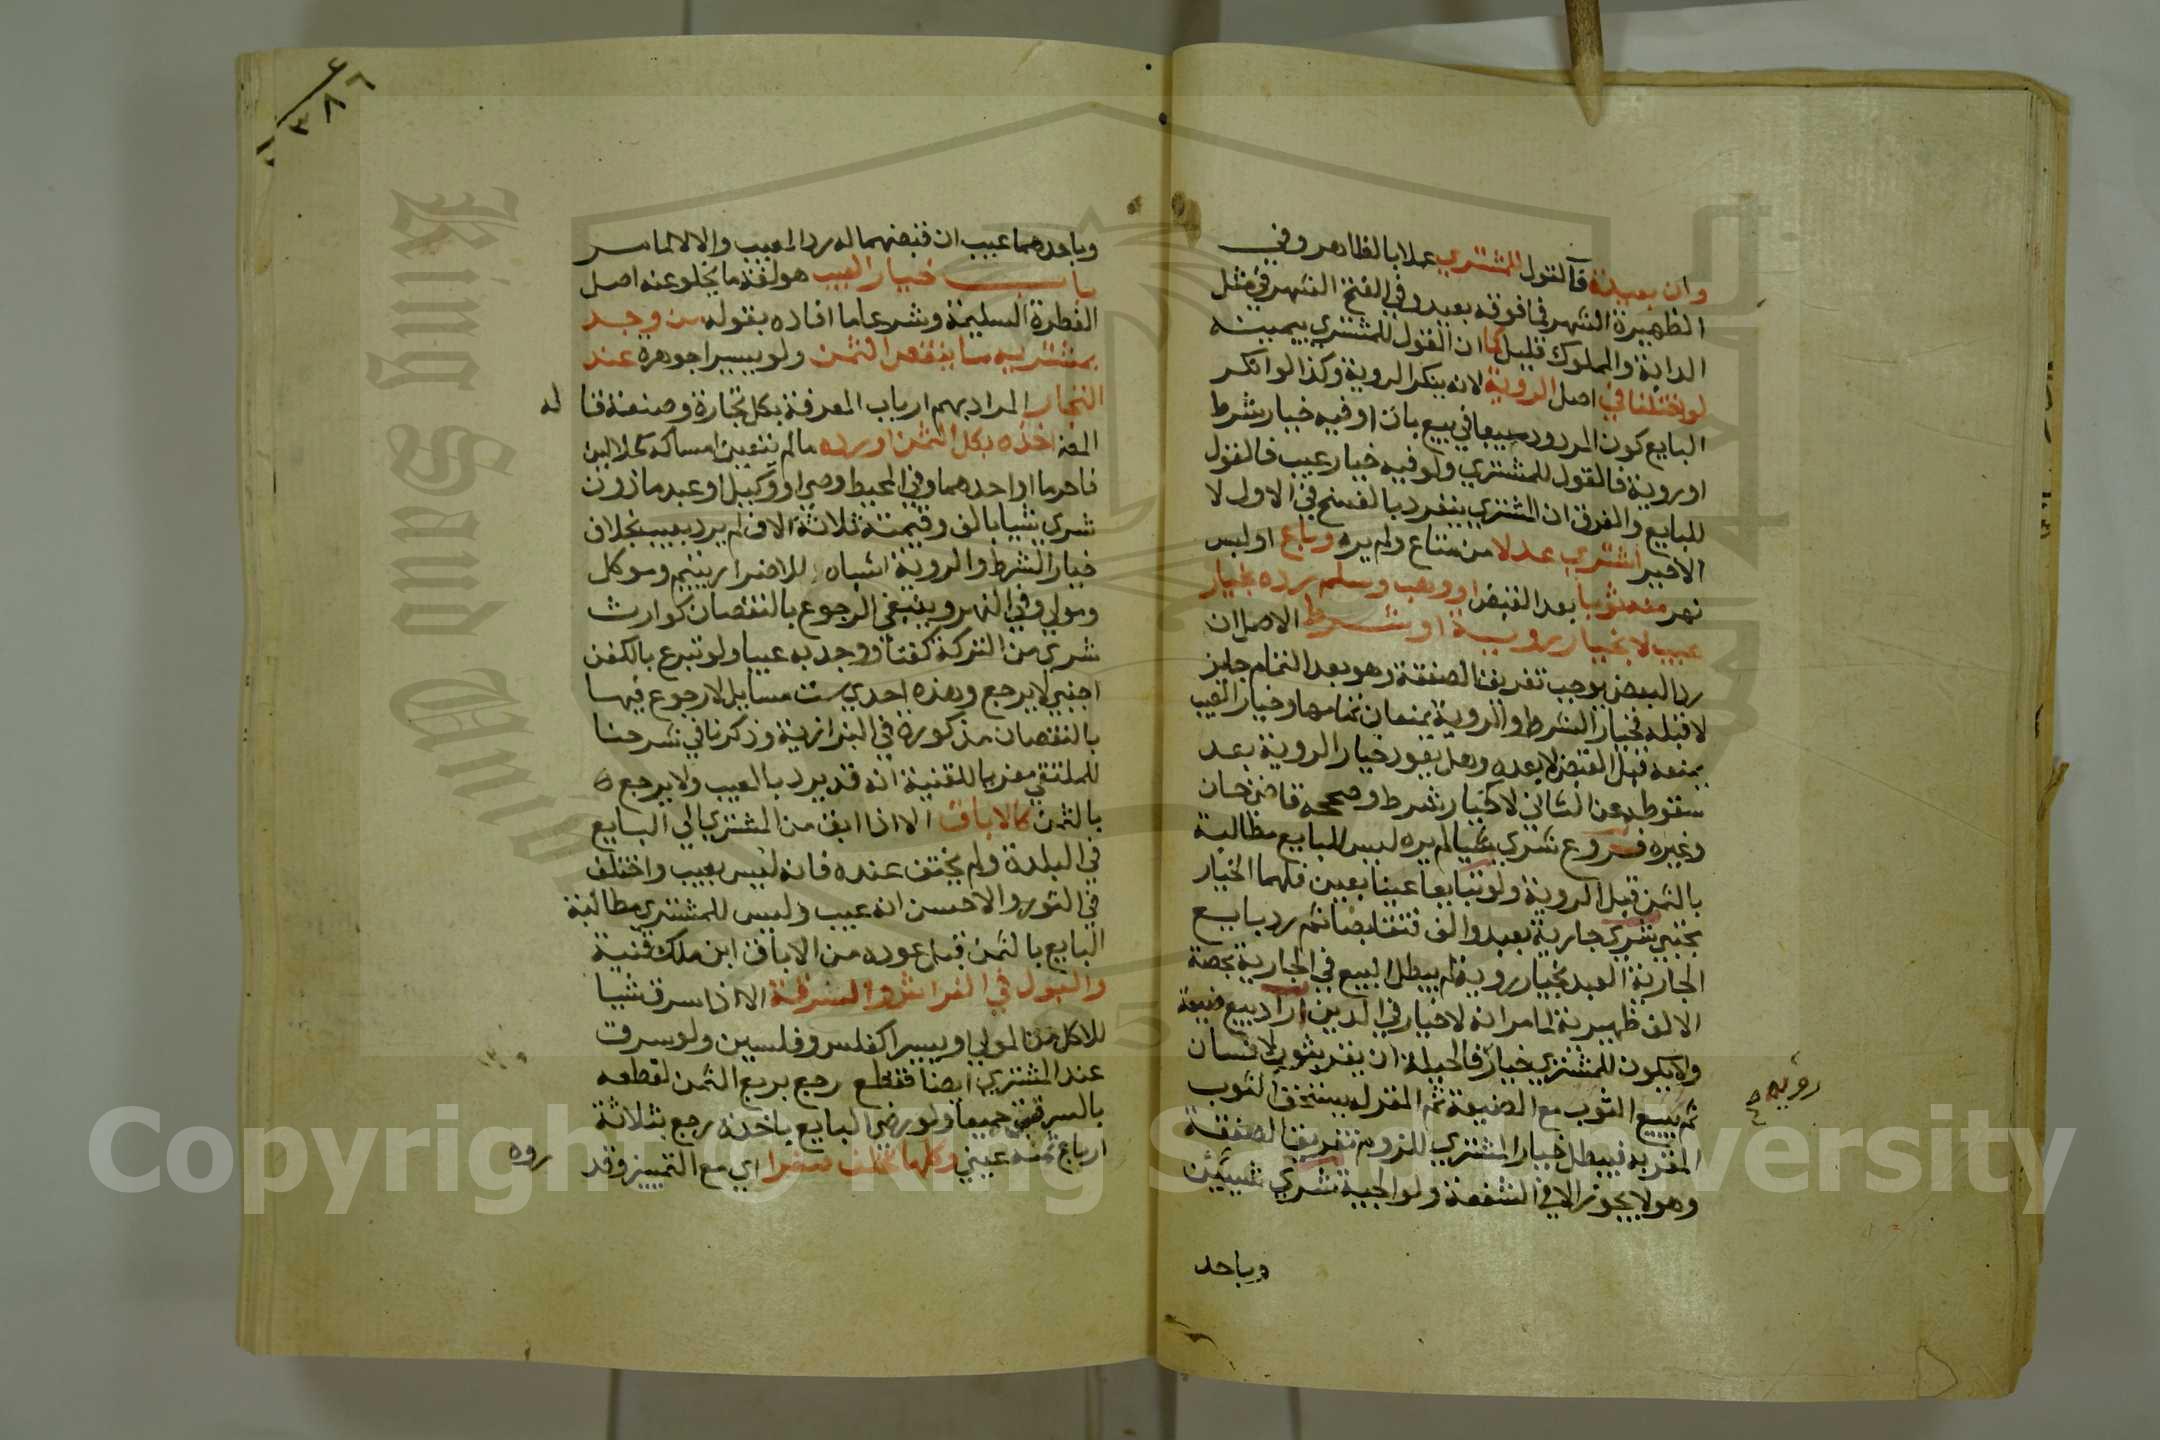 وان بعيدة فالقول للمشتري عملا بالظاهر وفي
الظهيرة الشهر فما فوقه بعيد وفي الفتح الشهر في مثل
الدابة والمملوك قليل كما ان القول للمشتري بيمينه
لو اختلفا في اصل الروية لانه ينكر الروية وكذا لو انكر
البايع كون المردود مبيعا في بيع بات او فيه خيار شرط
او روية فالقول للمشتري ولو فيه خيار عيب فالقول
للبايع والفرق ان المشتري ينفرد بالفسخ في الاول لا
الاخير اشتري عدلا من متاع ولم يره وباع او لبس
نهر منه ثوبا بعد القبض او وهب وسلم رده بخيار
عيب لا بخيار روية او شرط الاصل ان
رد البعض يوجب تفريق الصفقة وهو بعد التمام جايز
لا قبله فخيار الشرط والروية يمنعان تمامها وخيار العيب
يمنعه قبل القبض لا بعده وهل يعود خيار الروية بعد
سقوطه عن الثاني لا كخيار شرط وصححه قاضي خان
وغيره فروع شري شيا لم يره ليس للبايع مطالبة
بالثمن قبل الروية ولو تبايعا عينا بعين فلهما الخيار
مجتبي شري جارية بعبد والف فتقابضا ثم رد بايع
الجارية العبد بخيار روية لم يبطل البيع في الجارية بحصة
الالف ظهيرية لما مر انه لا خيار في الدين اراد بيع ضيعة
ولا يكون للمشتري خيار فالحيلة ان يقر بثوب لانسان
ثم يبيع الثوب مع الضيعة ثم المقر له يستحق الثوب
المقر به فيبطل خيار المشتري للزوم تفريق الصفقة
وهو لا يجوز الا في الشفعة ولوالجية شري شيئين
وباحد
وباحدهما عيب ان قبضهما له رد المعيب والا لا لما مر
باب خيار العيب هو لغة ما يخلو عنه اصل
الفطرة السليمة وشرعا ما افاده بقوله من وجد
بمشتريه ما ينقص الثمن ولو يسيرا جوهرة عند
التجار المراد بهم ارباب المعرفة بكل تجارة وصنعة قاله
المص اخذه بكل الثمن او رده ما لم يتعين امساكه كحلالين
احرما او احدهما وفي المحيط وصي او وكيل او عبد ماذون
شري شيا بالف وقيمته ثلاثة الاف لم يرد بعيب بخلاف
خيار الشرط والروية اشباه للاضرار بيتيم وموكل
ومولي وفي النهر وينبغي الرجوع بالنقصان كوارث
شري من التركة كفنا ووجد به عيبا ولو تبرع بالكفن
اجنبي لا يرجع وهذه احدي ست مسايل لا رجوع فيها
بالنقصان مذكورة في البزازية وذكرنا في شرحنا
للملتقي معزيا للقنية انه قد يرد بالعيب ولا يرجع
بالثمن كالاباق الا اذا ابق من المشتري الي البايع
في البلدة ولم يختف عنده فانه ليس بعيب واختلف
في الثور والاحسن انه عيب وليس للمشتري مطالبة
البايع بالثمن قبل عوده من الاباق ابن ملك قنية
والبول في الفراش والسرقة الا اذا سرق شيا
للاكل من المولي او يسيرا كفلس وفلسين ولو سرق
عند المشتري ايضا فقطع رجع بربع الثمن لقطعه
بالسرقتين جميعا ولو رضي البايع باخذه رجع بثلاثة
ارباع ثمنه عيني وكلها تختلف صغرا اي مع التمييز وقدروه
King Saud University
Copyright © King Saud University